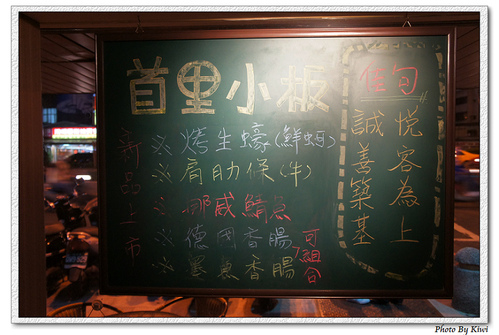 首里小板
新品上市
※ 烤生蠔(鮮蚵)
※ 肩肋條(牛)
※ 挪威鯖魚
※ 德國香腸
※ 墨魚香腸
可組合
佳句
悅客為上
誠善築基
Photo By Kiwi